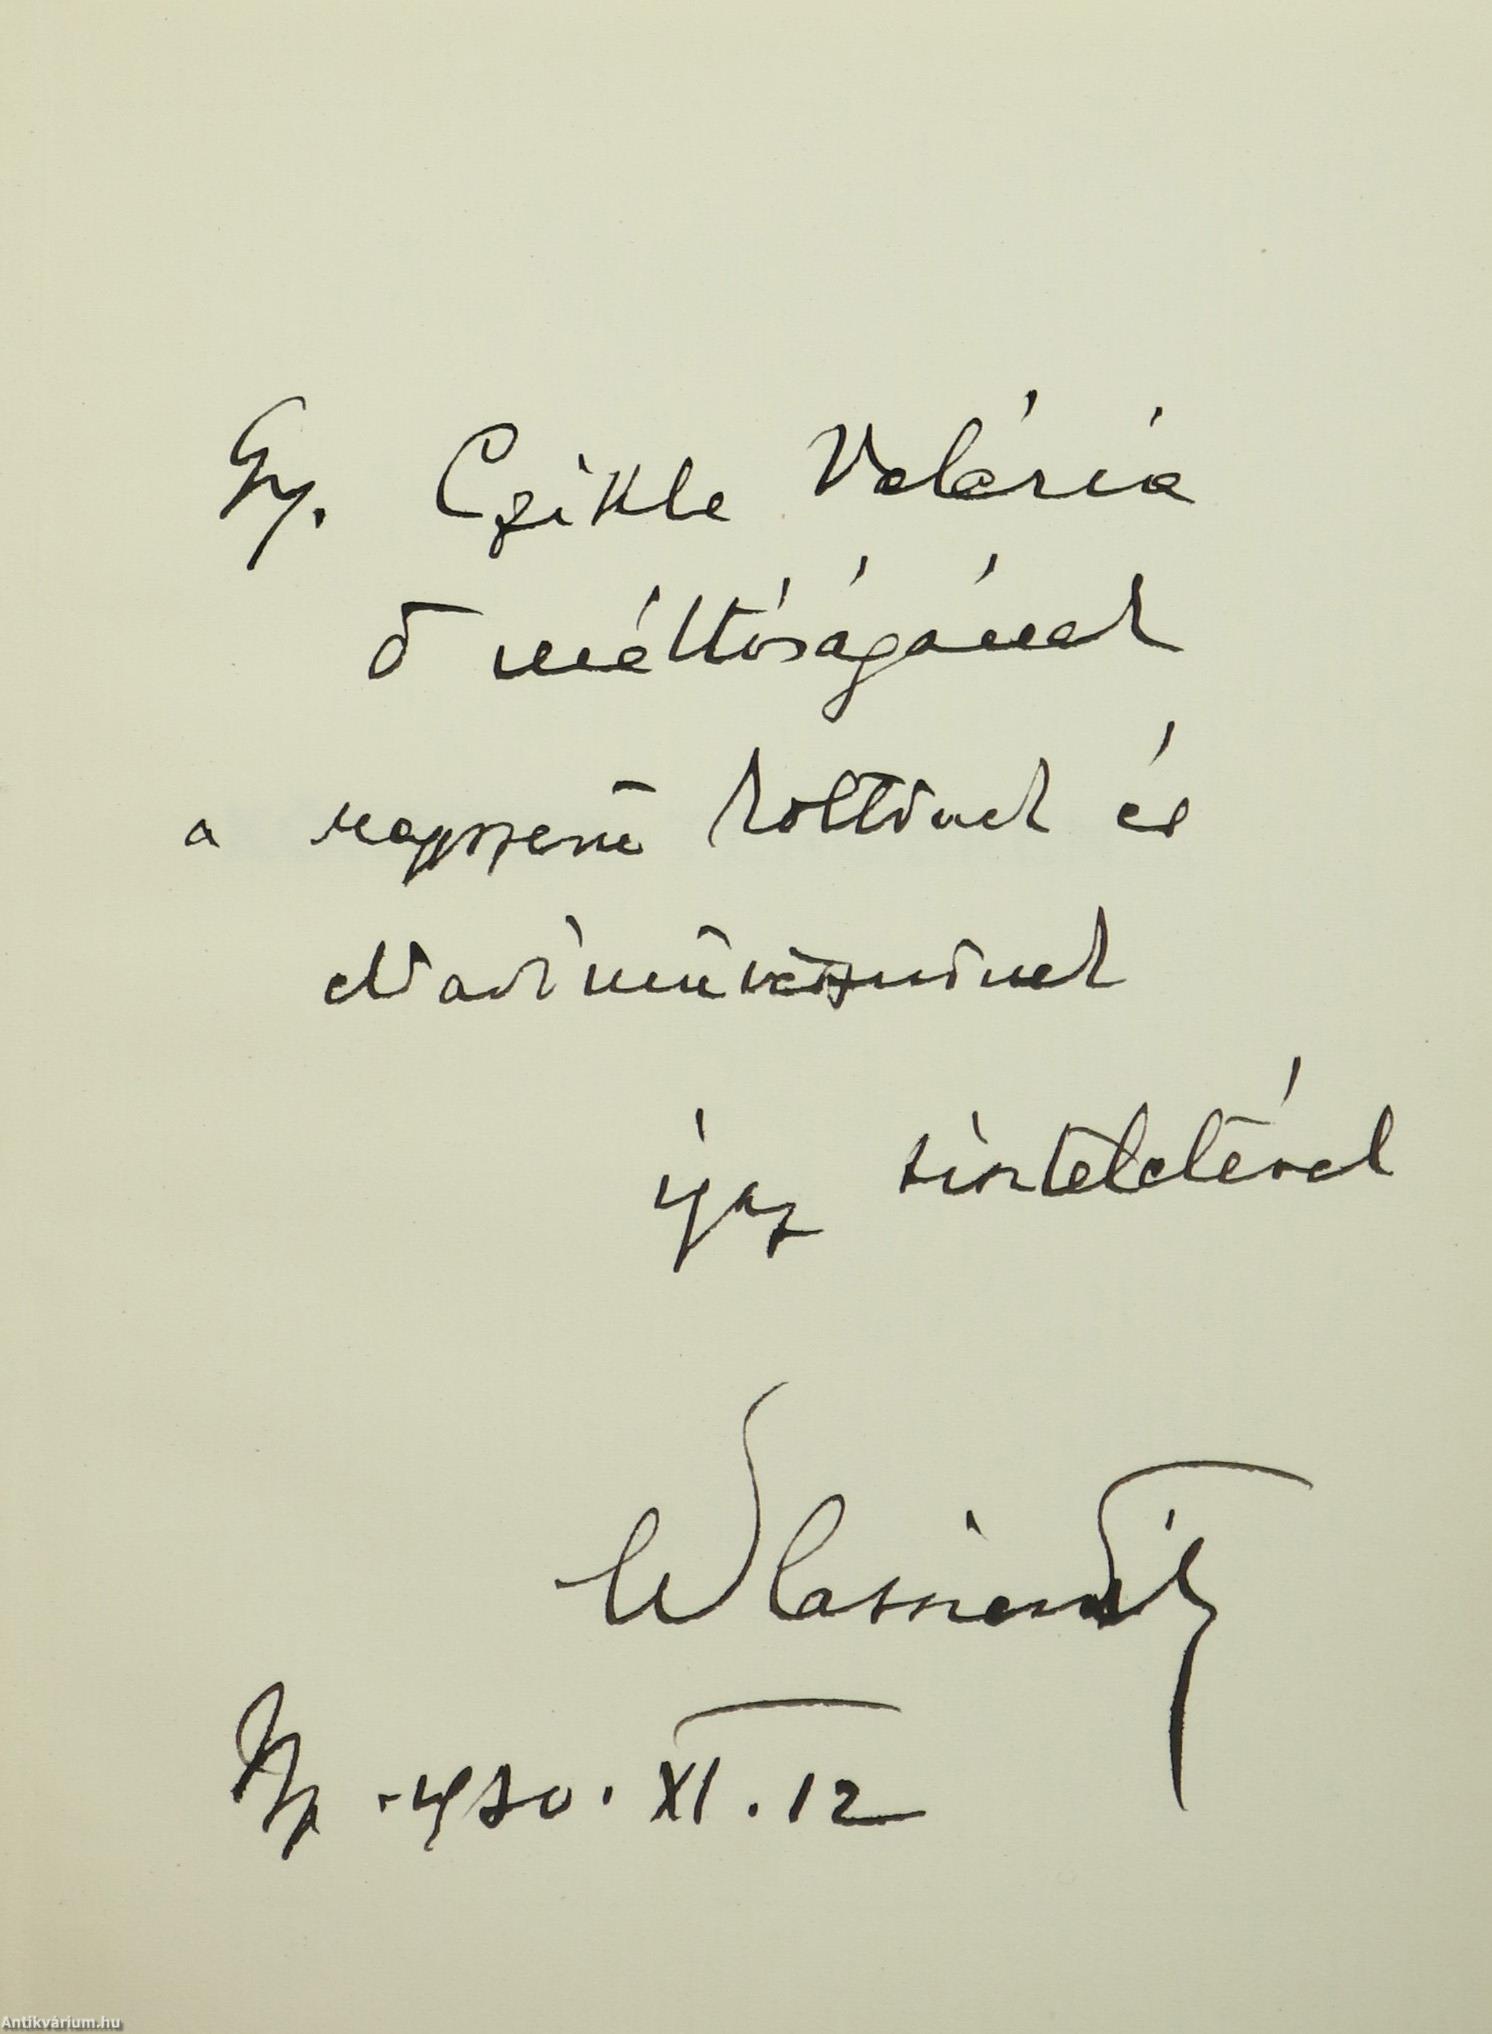 Gy. Czikle Valéria
ő méltóságának
a nagyszerű költőnek és
előadóművésznőnek
igaz tisztelettel
Wlassics
Bp. 930. XI. 12
Antikvárium.hu